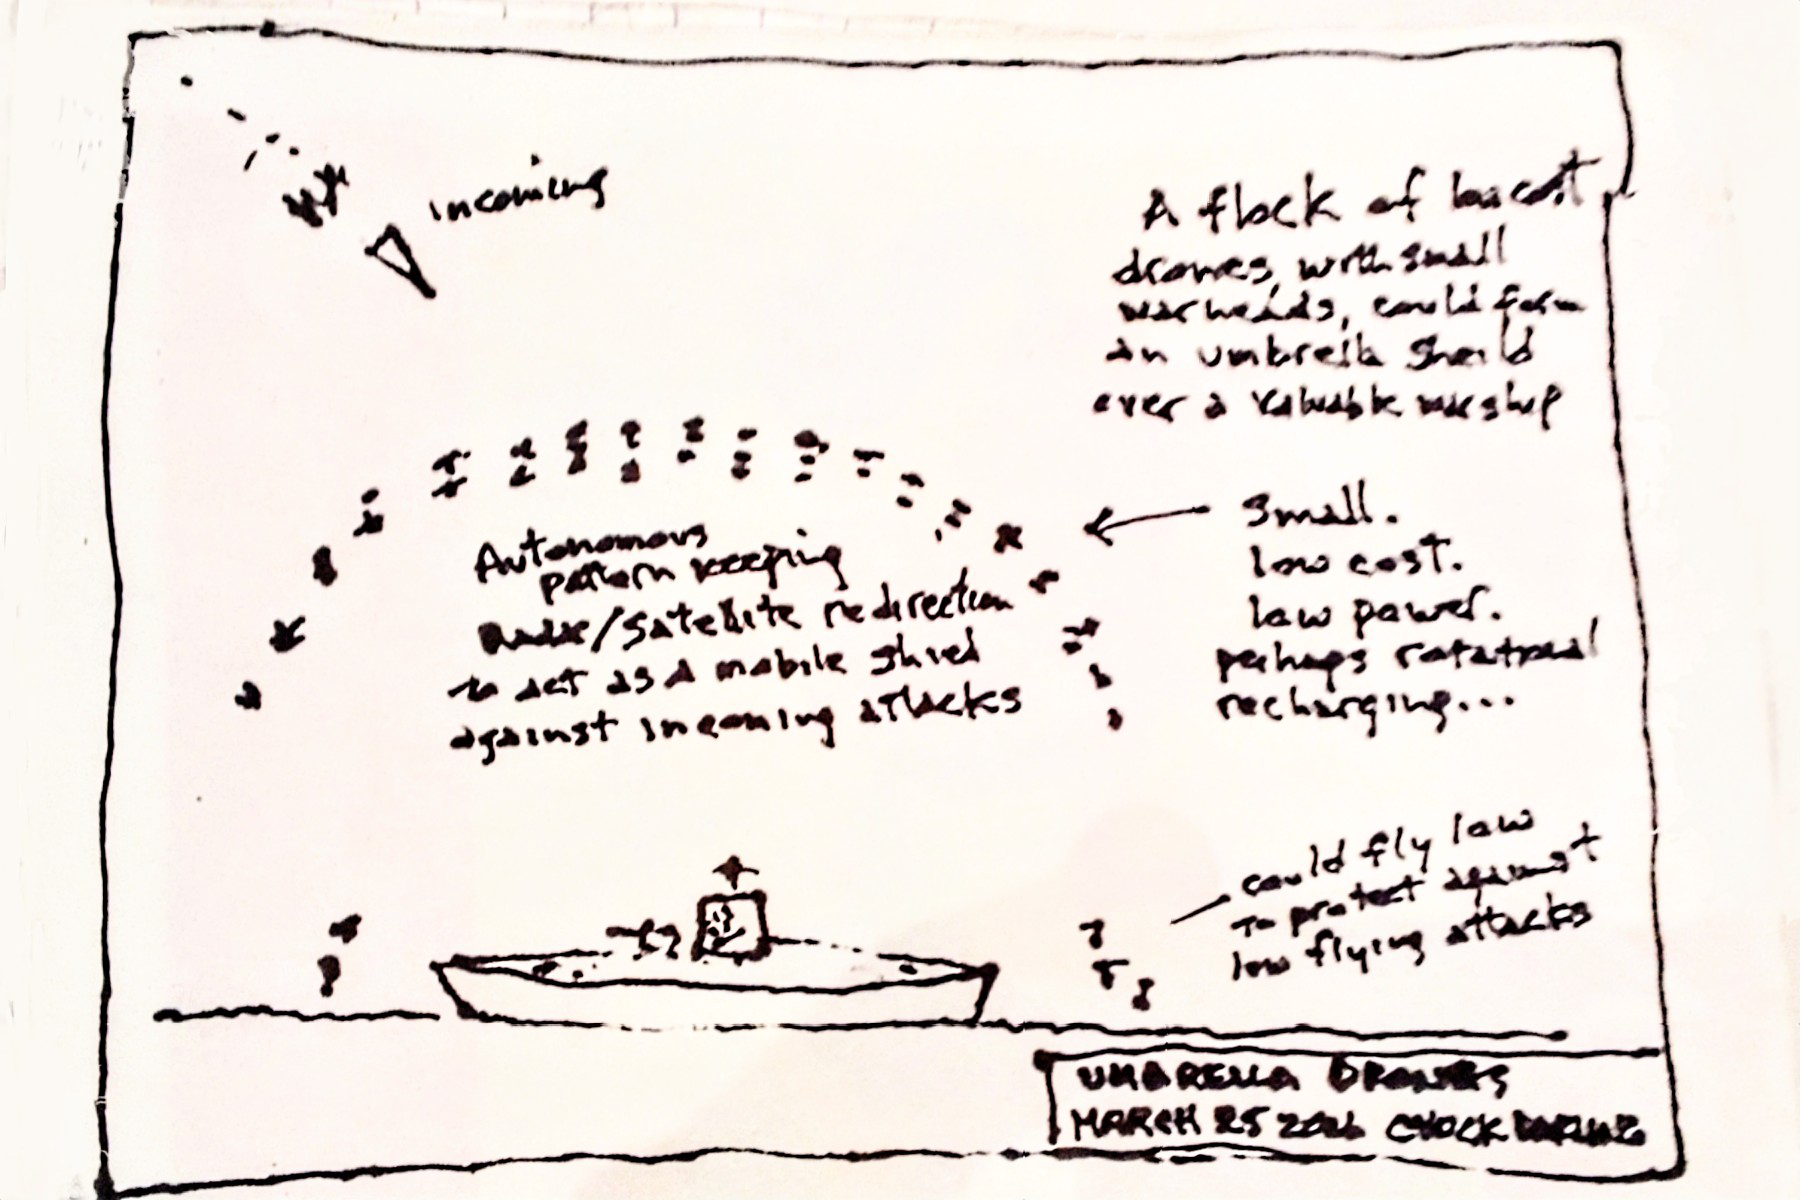 incoming
A flock of low cost
drones, with small
warheads, could form
an umbrella sheild
over a valuable warship
Autonomous
pattern keeping
Radar/Satellite redirection
to act as a mobile shied
against incoming attacks
Small.
low cost.
low power.
perhaps rotational
recharging...
could fly low
to protect against
low flying attacks
UMBRELLA DRONES
MARCH 25 2026 CHUCK